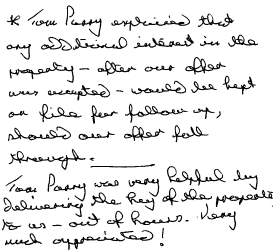 * Tom Parry explained that
any additional interest in the
property - after our offer
was accepted - would be kept
on file for follow up,
should our offer fall
through.
Tom Parry was very helpful by
delivering the key of the property
to us - out of hours. Very
much appreciated!